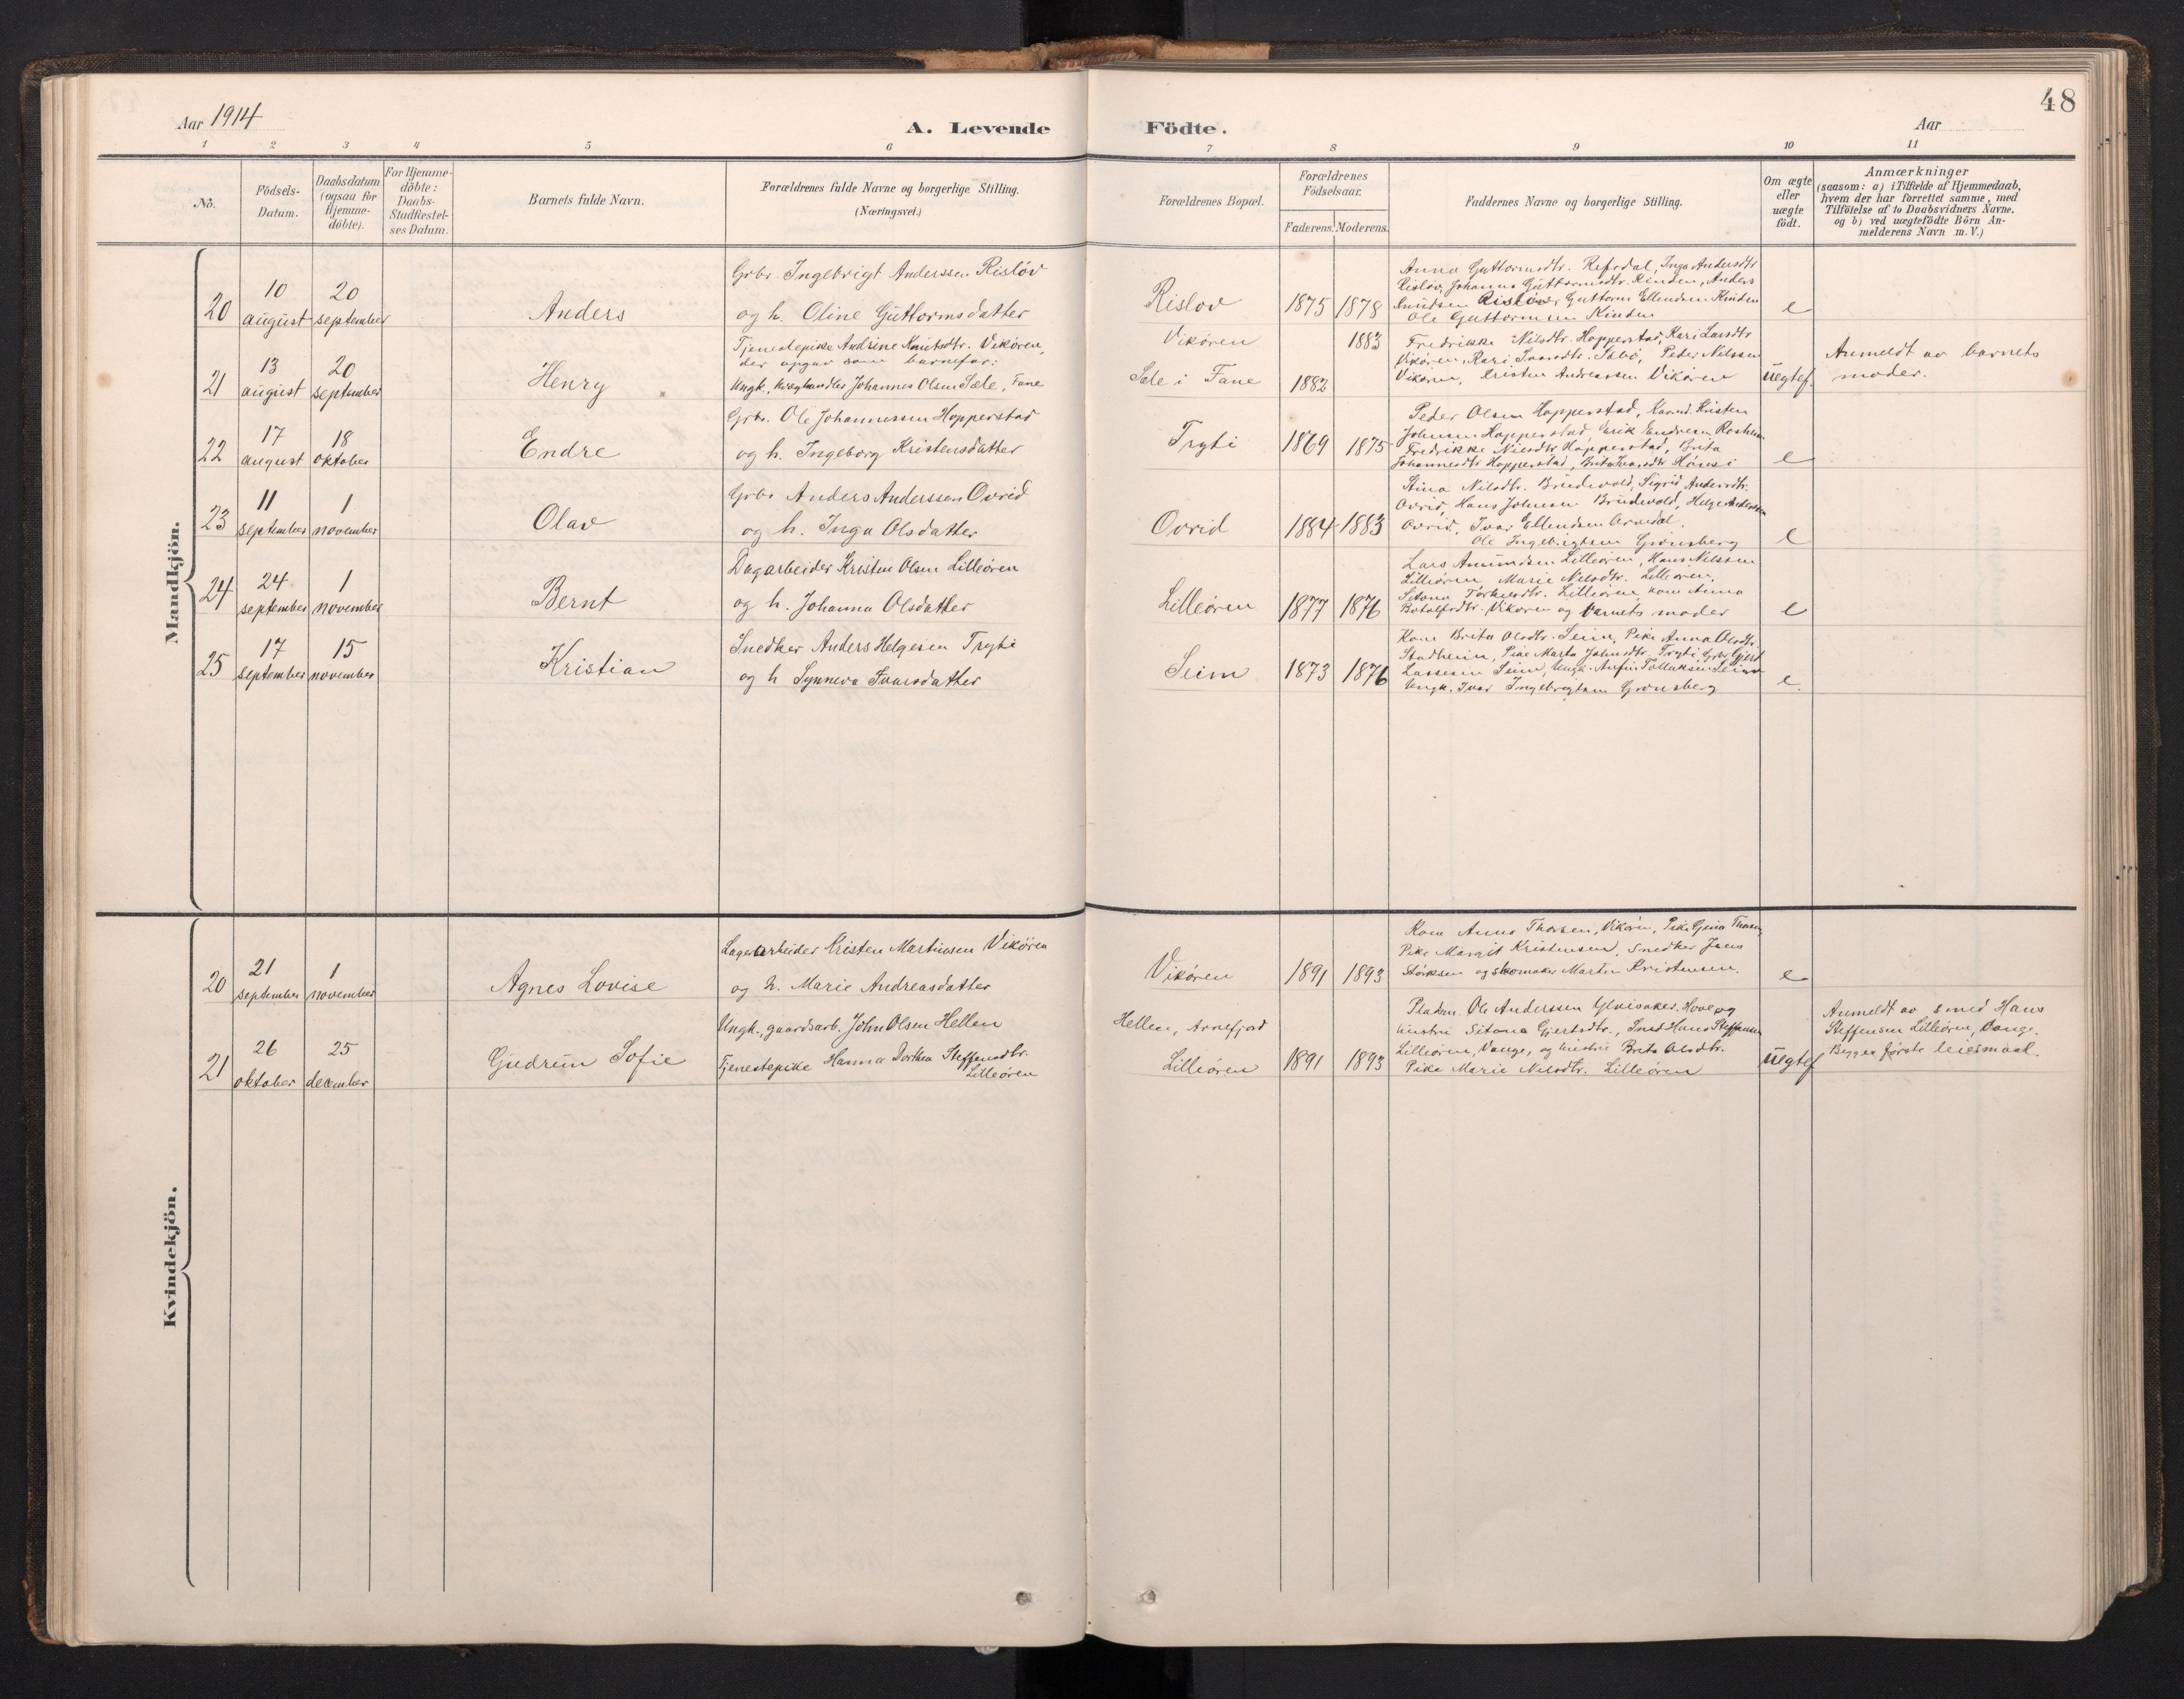 48
Aar 1914
A. Levende Födte.
Aar
1 2 3 4 5 6 7 8 9 10 11
No.
Födsels-
Datum.
Daabsdatum
(ogsaa for
Hjemme-
döbte).
For Hjemme-
döbte:
Daabs-
Stadfæstel-
ses Datum.
Barnets fulde Navn.
Forældrenes fulde Navne og borgerlige Stilling.
(Næringsvei.)
Forældrenes Bopæl.
Forældrenes
Födselsaar.
Faderens. Moderens.
Faddernes Navne og borgerlige Stilling.
Om ægte
eller
uægte
födt.
Anmærkninger
(saasom: a) i Tilfælde af Hjemmedaab,
hvem der har forrettet samme, med
Tilföielse af to Daabsvidners Navne.
og b) ved uægtefödte Börn An-
melderens Navn m. V.)
Mandkjön.
20
10
august
20
september
Anders
Grbr. Ingebrigt Anderssen Rislöv
og h. Oline Guttormsdatter
Rislov
1875 1878
Anna Guttormsdtr. Refsdal, Inga Andersdtr.
Rislov, Johanna Guttormsdtr. Rinden, Anders
Knudsen Rislöv, Guttorm Ellendsen Rinden
Ole Guttormsen Rinden
e
21
13
august
20
september
Henry
Tjenestepike Andrine Knutsdtr. Vikøren,
der opgav som barnefar:
Ungk., kræghandler Johannes Olsen Sæle, Fane
Vikøren
Sæle i Fane
1882
1883
Fredrikke Nilsdtr. Hopperstad, Kari Larsdtr
Vikøren, Kari Ivarsdtr. Sæbö, Peder Nilssen
Vikøren, Kristen Andreassen Vikøren
uegtef.
Anmeldt av barnets
moder.
22
17
august
18
oktober
Endre
Grbr. Ole Johannessen Hopperstad
og h. Ingeborg Kristensdatter
Tryti
1869 1875
Peder Olsen Hopperstad, Kaarmd. Kristen
Johnsen Hopperstad, Erik Endresen Rosheim
Fredrikke Nilsdtr. Hopperstad, Brita
Johannesdtr Hopperstad, Brita Ivarsdtr
e
23
11
september
1
november
Olav
Grbr Anders Anderssen Ovrid
og h. Inga Olsdatter
Ovrid
1884 1883
Stina Nilsdtr. Brudevold, Sigrid Andersdtr.
Ovrid, Hans Johnsen Brudevold, Helge Anderssen
Ovrid, Ivar Ellendsen Arnedal.
Ole Ingebrigtsen Grønsberg
e
24
24
september
1
november
Bernt
Dagarbeider Kristen Olsen Lilleøren
og h. Johanna Olsdatter
Lilleøren
1877 1876
Lars Amundsen Lilleøren, Hans Nilssen
Lilleøren, Marie Nilsdtr. Lilleøren,
Sitona Torkelsdtr. Lilleøren, kone Anna
Botolfsdtr. Vikøren og barnets moder
e
25
17
september
15
november
Kristian
Snedker Anders Helgesen Tryti
og h Synneva Ivarsdatter
Seim
1873 1876
Kone Brita Olsdtr. Seim, Pike Anna Olsdtr.
Stadheim, Pike Marta Johnsdtr. Tryti, Grbr. Gjert
Lassesen Seim, Ungk. Anfin Tollaksen Seim
Ungk. Ivar Ingebrigtsen Grønsberg
e.
Kvindekjön.
20
21
september
1
november
Agnes Lovise
Lagerarbeider Kristen Martinsen Vikören
og h. Marie Andreasdatter
Vikören
1891 1893
Kone Anna Thorsen, Vikøren, Pike Gjina Thorsen,
Pike Margit Kristensen, Snedker Jens
Størksen og skomaker Martin Kristensen.
e
21
26
oktober
25
december
Gudrun Sofie
Ungk., gaardsarb. John Olsen Hellen
Tjenestepike Hanna Dorthea Steffensdtr.
Lilleøren
Hellen, Arnefjord
Lilleøren
1891 1893
Pladsm. Ole Anderssen Hove og
hustru Sitona Gjertsdtr., Smed Hans Steffensen
Lilleøren, Vange, og hustru Brita Olsdtr.
Pike Marie Nilsdtr. Lilleøren
uegtef
Anmeldt av smed Hans
Steffensen Lilleøren, Vange.
Begges første leiermaal.